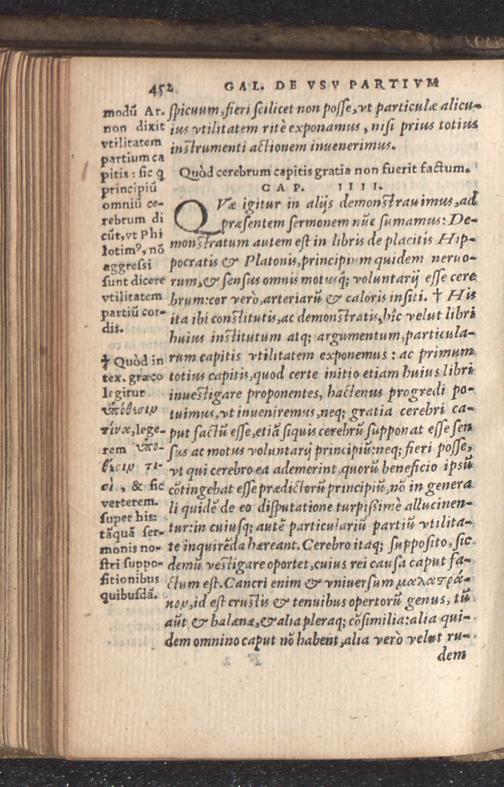 452 GAL. DE VSV PARTIVM
modū Ar.
non dixit
vtilitatem
partium ca
pitis: sic q
principiū
omniū ce-
rebrum di
cūt, vt Phi
lotim⁹, nō
aggressi
sunt dicere
vtilitatem
partiū cor-
dis.
† Quòd in
tex. græco
legitur
ὑπόθεσιν
τίνα, lege-
rem ὑπο-
θέσιν τι-
σὶ, & sic
verterem.
super his:
tāquā ser-
monis no-
stri suppo-
sitionibus
quibusdā.
spicuum, fieri scilicet non posse, vt particulæ alicu-
ius vtilitatem ritè exponamus, nisi prius totius
instrumenti actionem inuenerimus.
Quòd cerebrum capitis gratia non fuerit factum.
CAP. IIII.
QVæ igitur in alijs demonstrauimus, ad
præsentem sermonem nūc sumamus: De-
monstratum autem est in libris de placitis Hip-
pocratis & Platonis, principium quidem neruo-
rum, & sensus omnis motusq; voluntarij esse cere
brum: cor verò, arteriarū & caloris insiti. † His
ita ibi constitutis, ac demonstratis, hîc velut libri
huius institutum atq; argumentum, particula-
rum capitis vtilitatem exponemus: ac primum
totius capitis, quod certe initio etiam huius libri
inuestigare proponentes, hactenus progredi po-
tuimus, vt inueniremus, neq; gratia cerebri ca-
put factū esse, etiā siquis cerebrū supponat esse sen
sus ac motus voluntarij principiū: neq; fieri posse,
vt qui cerebro ea ademerint, quorū beneficio ipsū
cōtingebat esse prædictorū principiū, nō in genera
li quidē de eo disputatione turpissimè allucinen-
tur: in cuiusq; autē particularium partiū vtilita-
te inquirēda hæreant. Cerebro itaq; supposito, sic
demū vestigare oportet, cuius rei causa caput fa-
ctum est. Cancri enim & vniuersum μαλαςρά-
κον, id est crustis & tenuibus opertorū genus, tū
aūt & balænæ, & alia pleraq; cōsimilia: alia qui-
dem omnino caput nō habent, alia verò velut ru-
dem